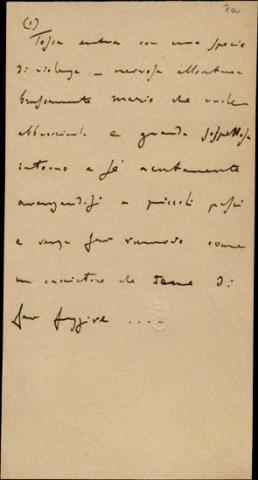 (1)
Tosca entra con una specie
di violenza – nervosa allontana
bruscamente Mario che vuole
abbracciarla e guarda sospettosa
intorno a sé acutamente
avanzandosi a piccoli passi
e senza far rumore come
un cacciatore che teme di
far fuggire ....